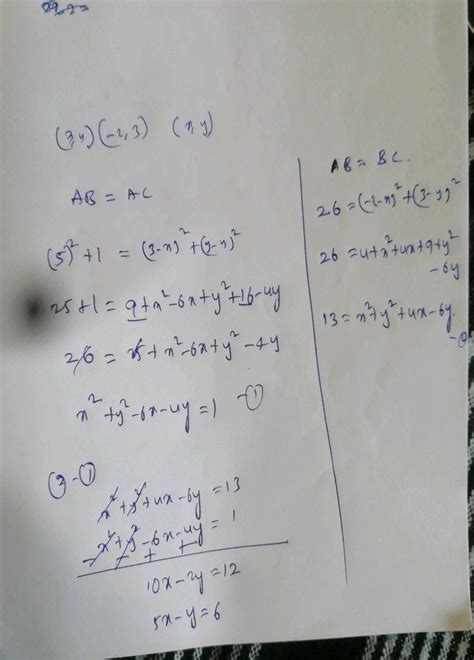 (3,4) (-2,3) (x,y)
AB = AC
(5)² + 1 = (3-x)² + (y-x)²
25+1 = 9+x²-6x+y²+16-4y
26 = x²-6x+y²-4y
x²+y²-6x-4y=1 -①
②-①
x²+y²+4x-6y=13
x²+y²-6x-4y=1
- - + + -
10x-2y=12
5x-y=6
AB = BC.
26=(-2-x)²+(3-y)²
26=4+x²+4x+9+y²
-6y
13=x²+y²+4x-6y
-②